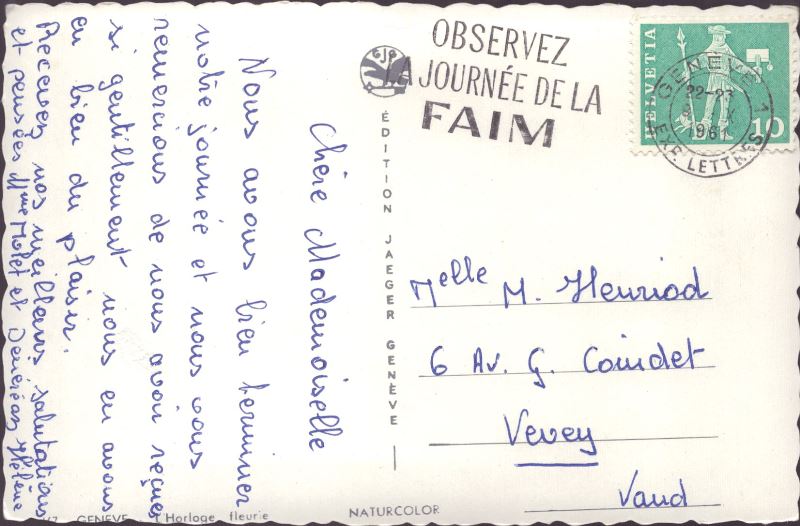 Chère Mademoiselle
Nous avons bien terminer
notre journée et nous vous
remercions de nous avoir reçues
si gentillement nous en avons
eu bien du plaisir.
Recevez nos meilleurs salutations
et pensées Mme Molet et Hélène
OBSERVEZ
LA JOURNÉE DE LA
FAIM
HELVETIA
10
GENÈVE 1
22-23
X
1961
EXP. LETTRES
ÉDITION JAEGER GENÈVE
Melle M. Henriod
6 Av. G. Coindet
Vevey
Vaud
GENEVE L'Horloge fleurie
NATURCOLOR